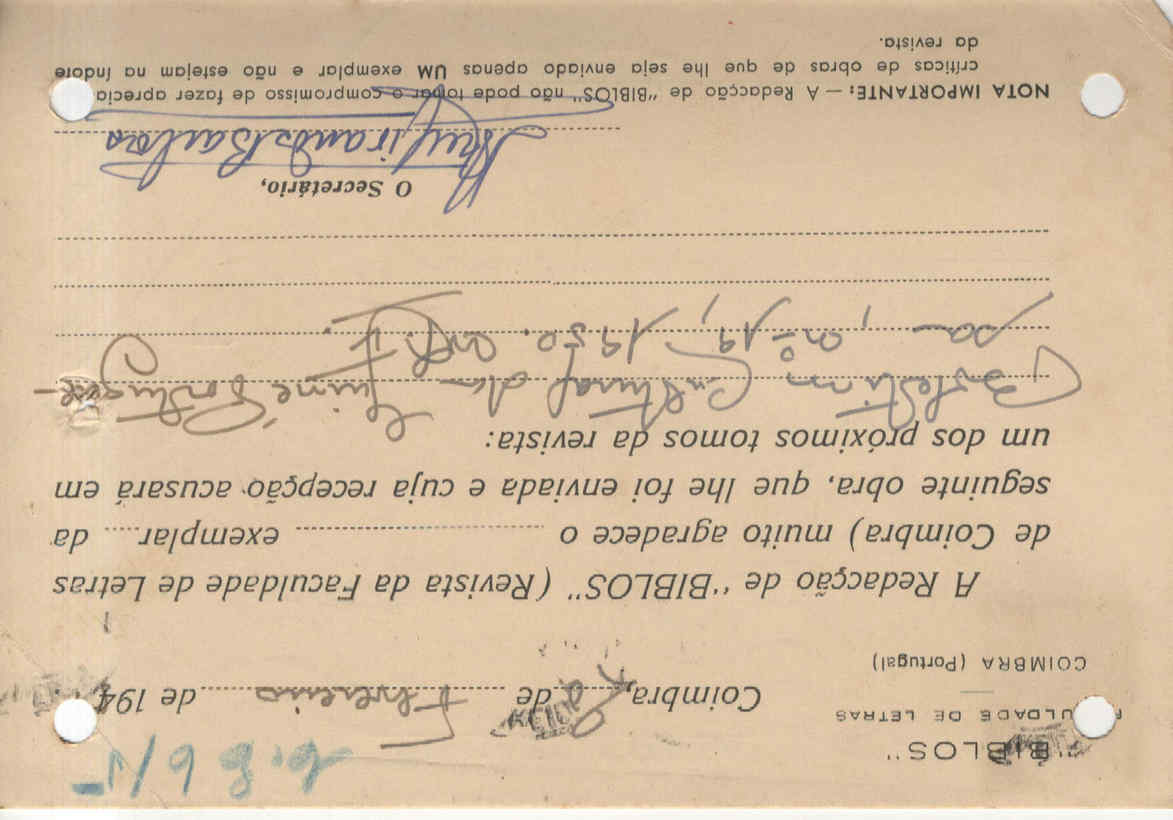 "BIBLOS"
FACULDADE DE LETRAS
COIMBRA (Portugal)
Coimbra, de Fevereiro de 194
A Redacção de "BIBLOS" (Revista da Faculdade de Letras
de Coimbra) muito agradece o ........ exemplar.... da
seguinte obra, que lhe foi enviada e cuja recepção acusará em
um dos próximos tomos da revista:
Boletim Cultural da Guiné Portugue-
sa, nº 19, 1950.
O Secretário,
NOTA IMPORTANTE: — A Redacção de "BIBLOS" não pode tomar o compromisso de fazer aprecia
críticas de obras de que lhe seja enviado apenas UM exemplar e não estejam na índole
da revista.